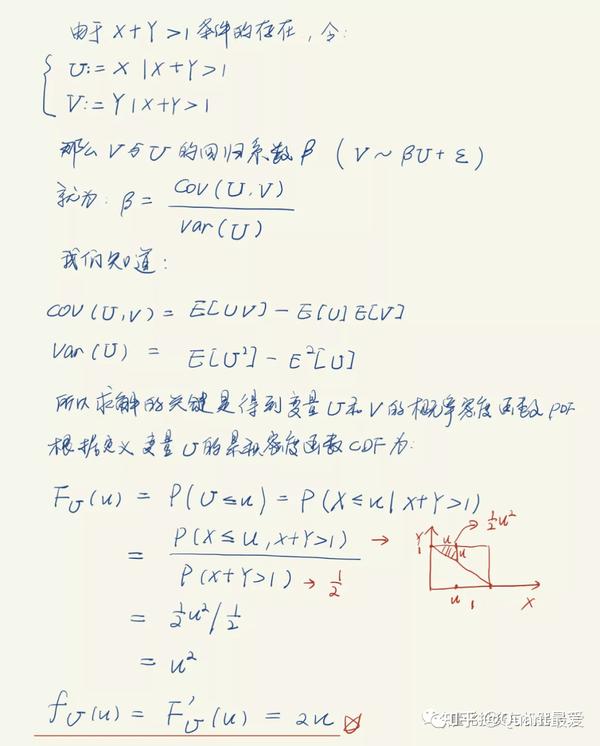 由于 X+Y>1 条件的存在，令：
U:= X | X+Y>1
V:= Y | X+Y>1
那么 V 与 U 的回归系数 β （V ~ βU + ε）
就为: β = cov(U,V) / var(U)
我们知道：
cov(U,V) = E[UV] - E[U]E[V]
var(U) = E[U²] - E²[U]
所以求解的关键是得到变量 U 和 V 的概率密度函数 PDF
根据定义变量 U 的累积密度函数 CDF 为:
F_U(u) = P(U≤u) = P(X≤u | X+Y>1)
= P(X≤u, X+Y>1) / P(X+Y>1) → 1/2
= ½u² / ½
= u²
f_U(u) = F'_U(u) = 2u
Y
1
u
u
½u²
u
1
X